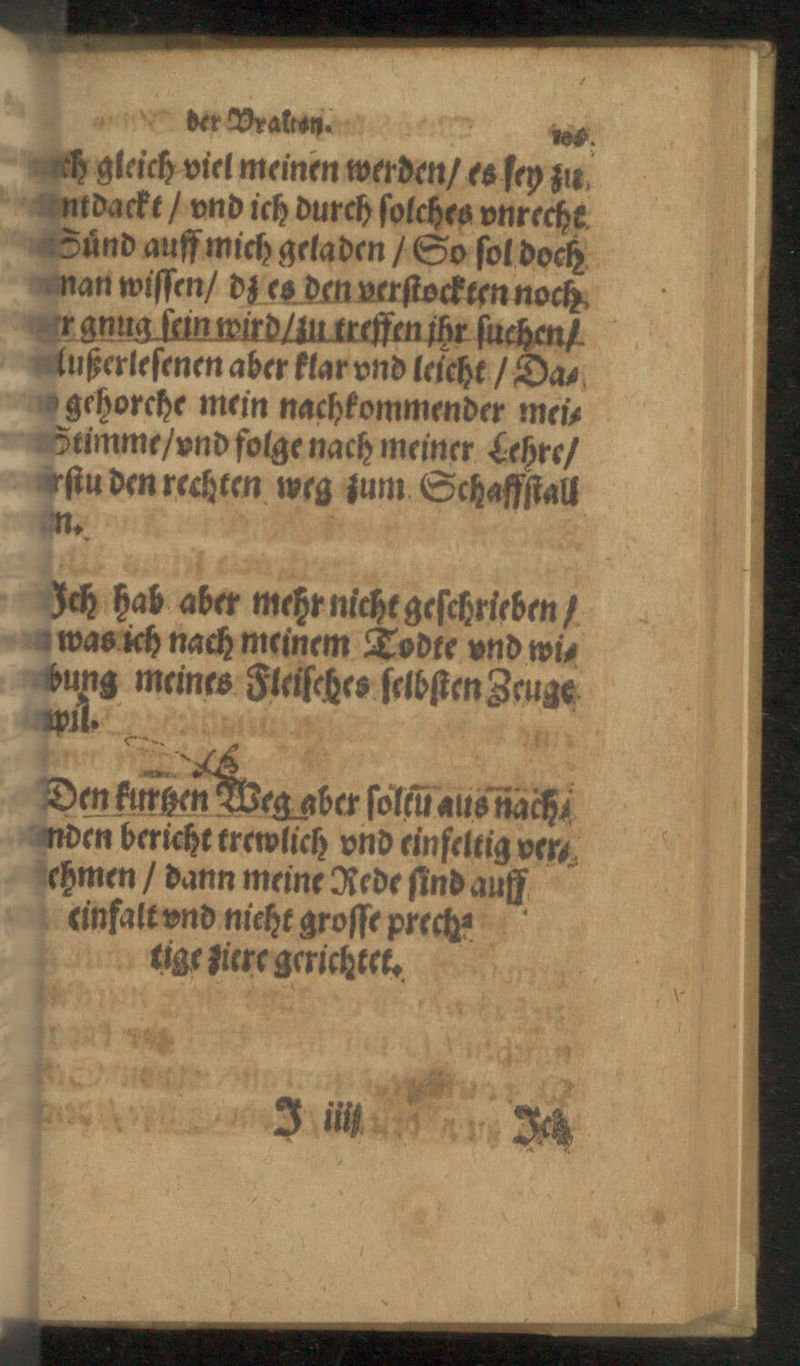 der Vralten.
gleich viel meinen werden/ es sey zu
ntdackt / vnd ich durch solches vnrecht
Sünd auff mich geladen / So sol doch
man wissen/ dz es den verstockten noch
r gnug sein wird/zu treffen jhr suchen/
ußerlesenen aber klar vnd leicht / Da⸗
gehorche mein nachkommender mei⸗
Stimme/vnd folge nach meiner Lehre/
rstu den rechten weg zum Schaffstall
n.
Ich hab aber mehr nicht geschrieben /
was ich nach meinem Todte vnd wi⸗
bung meines Fleisches selbsten Zeuge
wil.
Den kurtzen Weg aber soltu aus nach⸗
nden bericht trewlich vnd einfeltig ver⸗
ehmen / dann meine Rede sind auff
einfalt vnd nicht grosse prech⸗
tige ziere gerichtet.
J iiij Ich